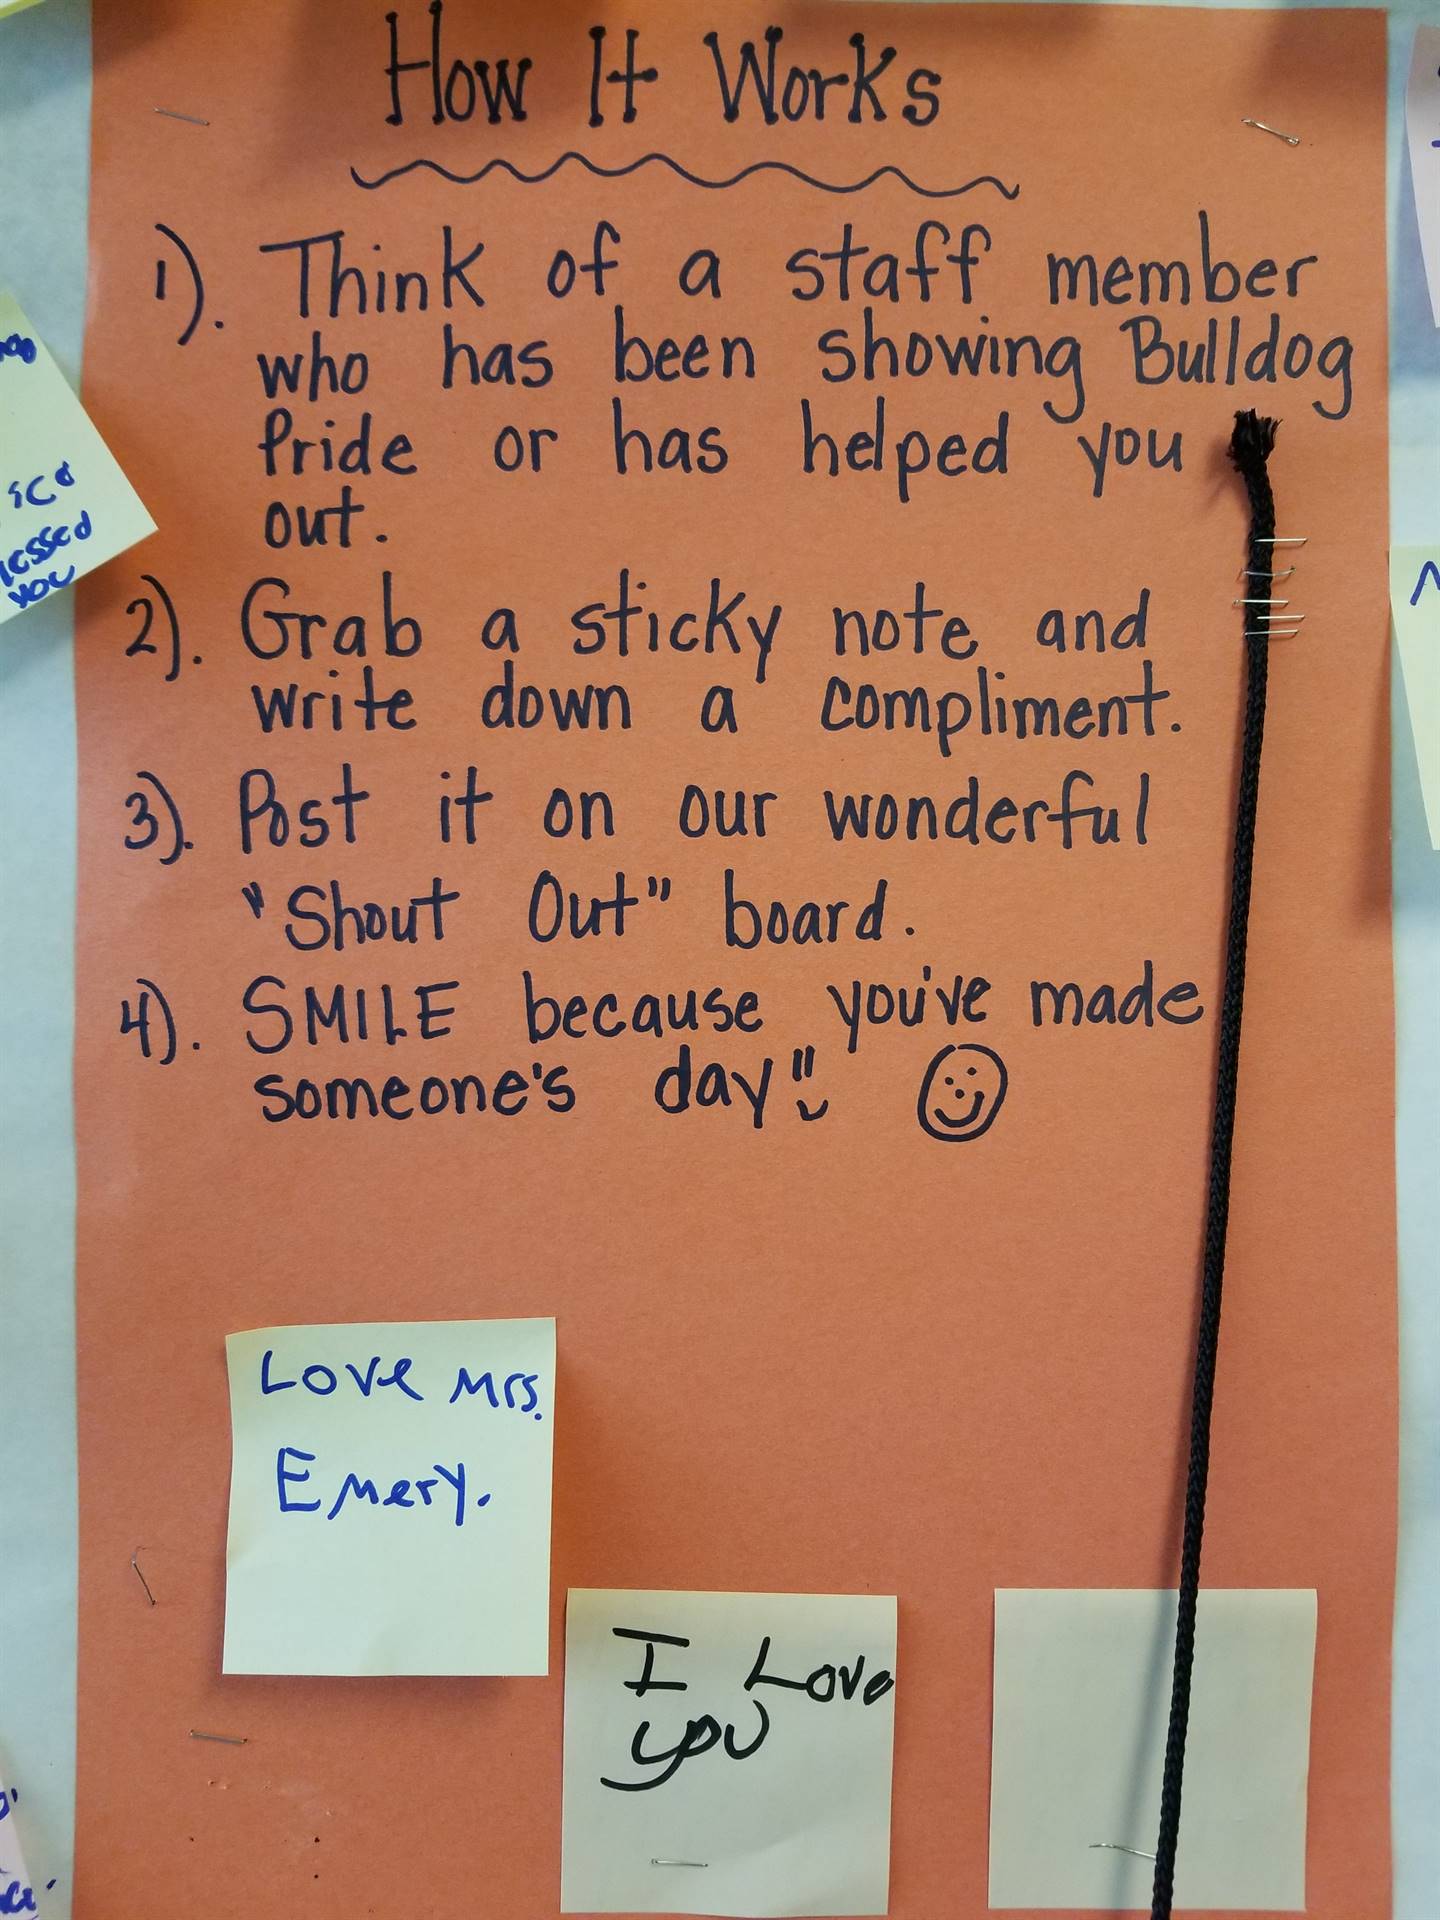 How It Works
1). Think of a staff member
who has been showing Bulldog
Pride or has helped you
out.
2). Grab a sticky note and
write down a compliment.
3). Post it on our wonderful
"Shout Out" board.
4). SMILE because you've made
someone's day!!
Love Mrs.
Emery.
I Love
you
you